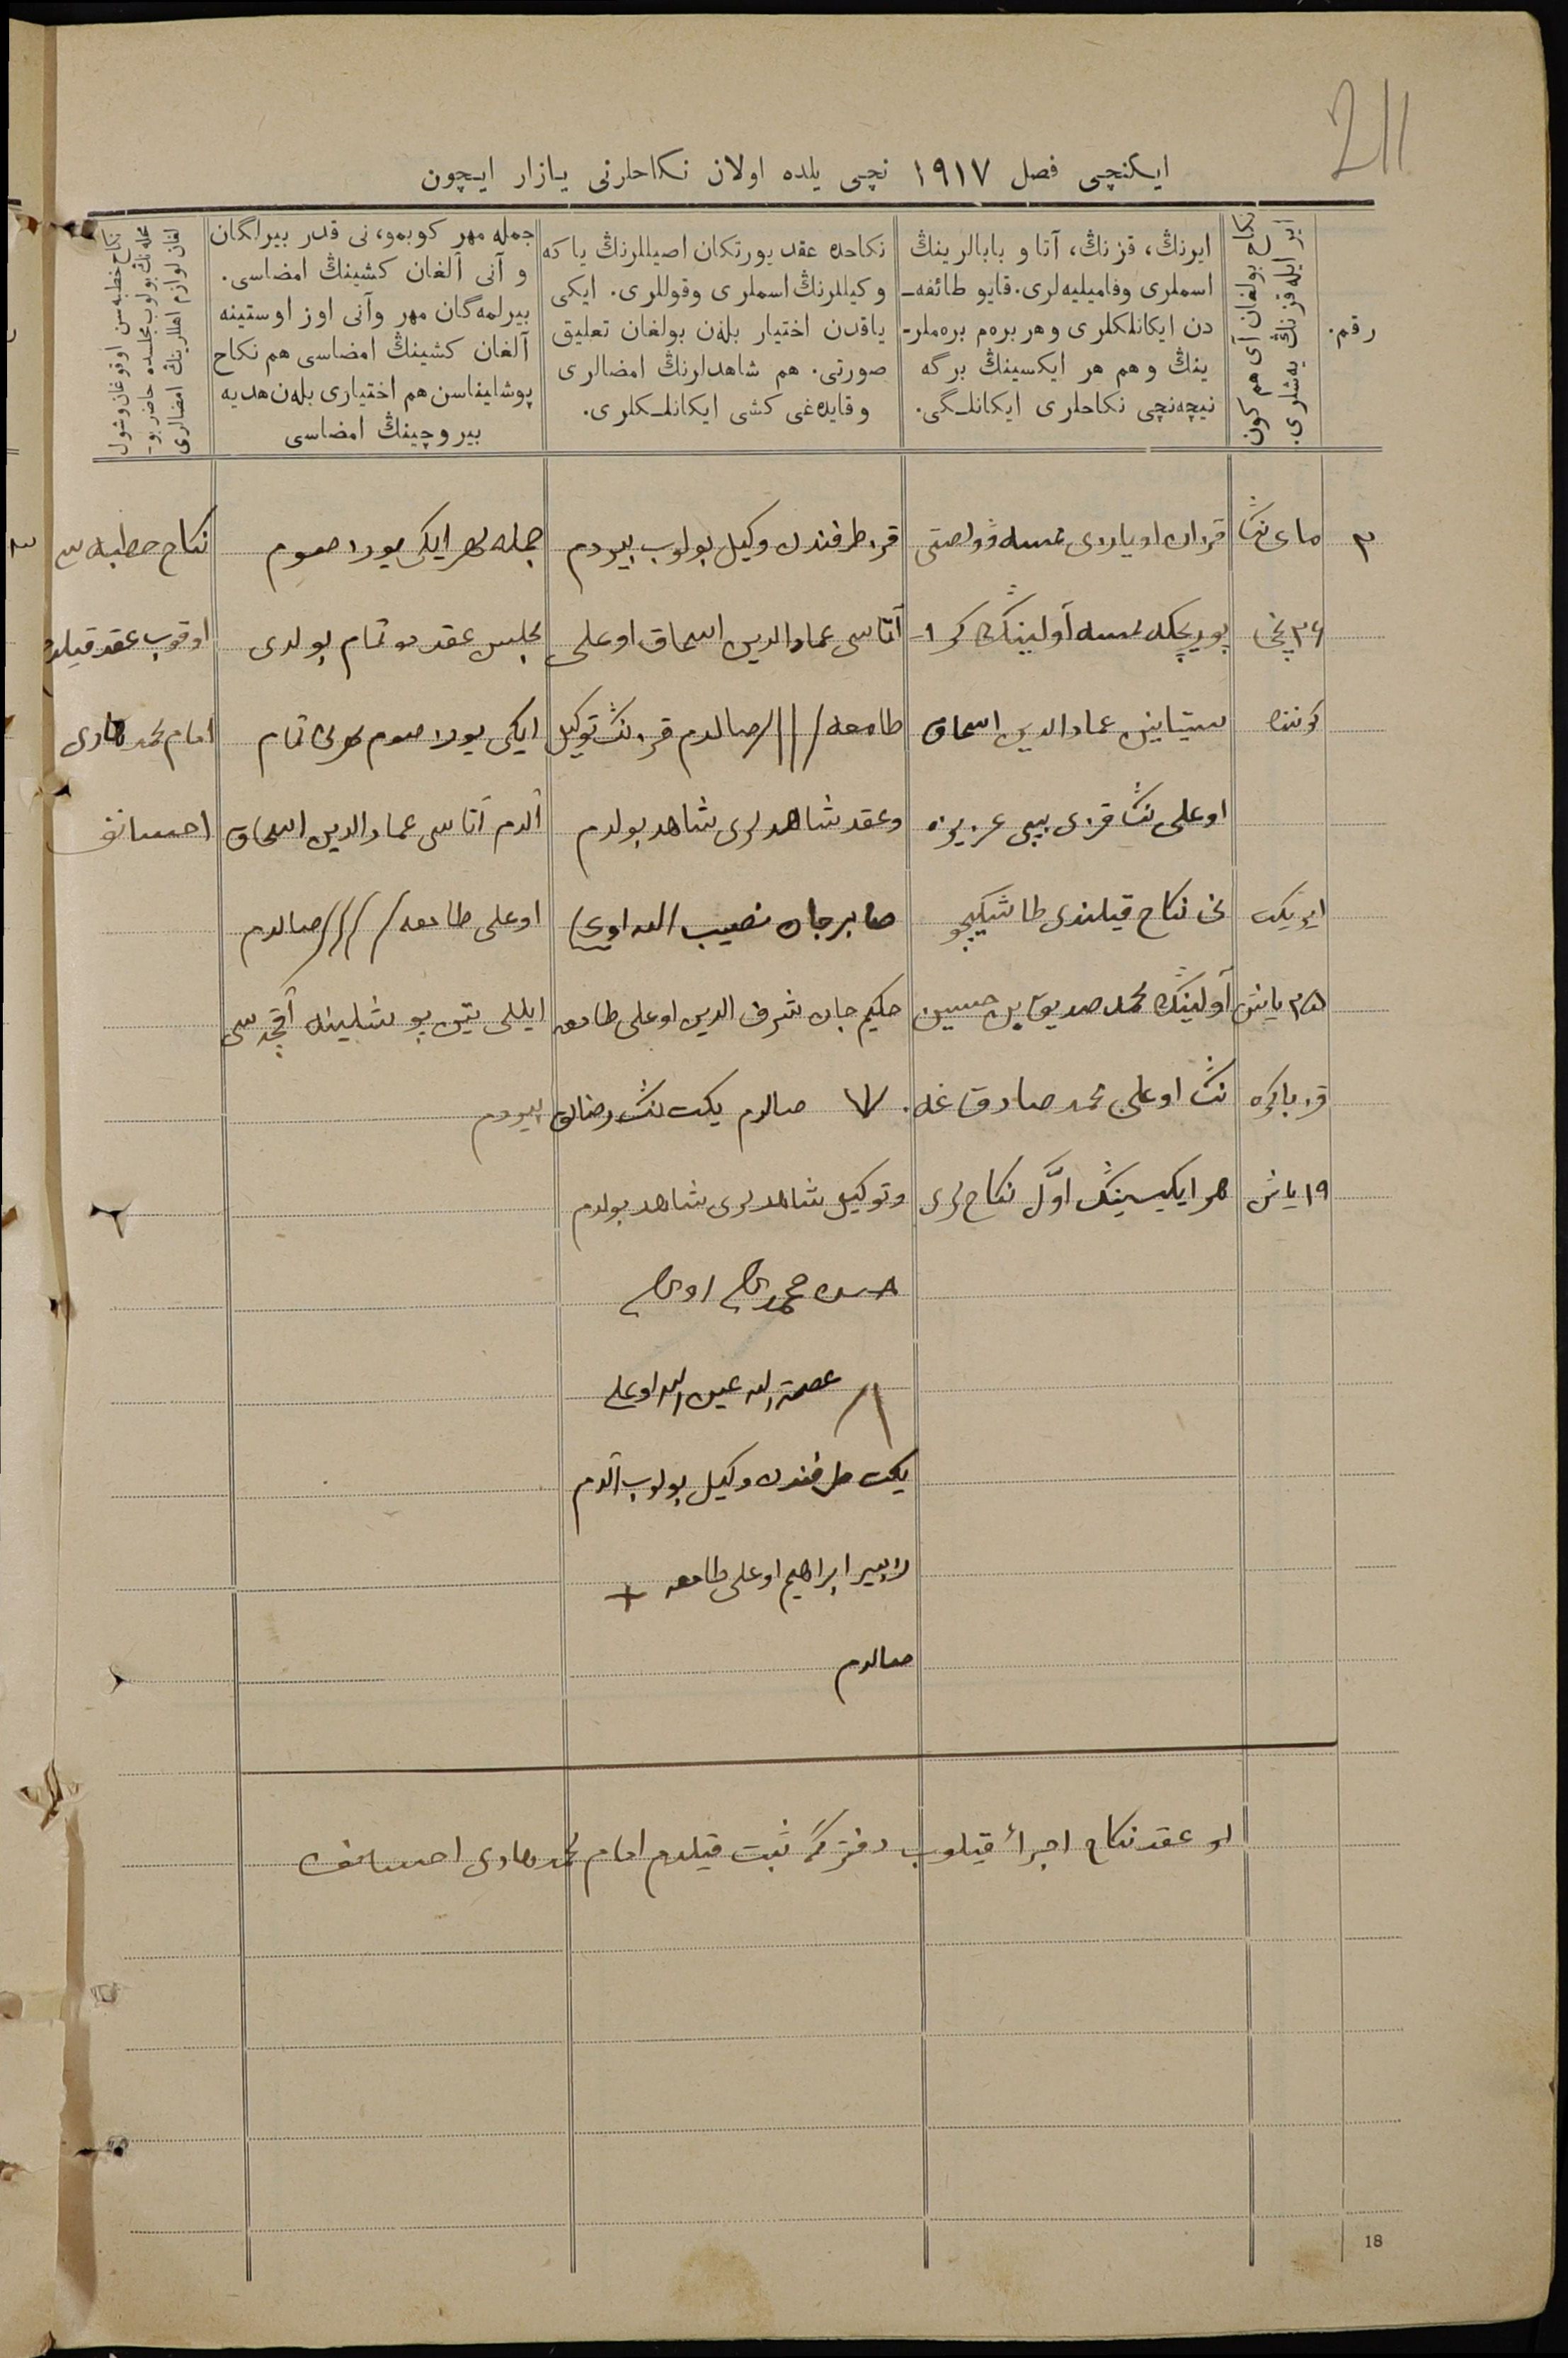 211
ایکنچی فصل ١٩١٧ نچی یلده اولان نکاحلرنی یازار ایچون
رقم.
نکاح بولغان آی هم کون
ایر ایله قزنڭ یه‌شلری.
ایرنڭ، قزنڭ، آتا و بابالرینڭ
اسملری وفامیلیه‌لری. قایو طائفه‌ـ
دن ایکانلکلری و هر بره‌م بره‌ملرـ
ینڭ و هم هر ایکسینڭ برگه
نیچه‌نچی نکاحلری ایکانلـگی.
نکاحده عقد یورتکان اصیللرنڭ یا که
وکیللرنڭ اسملری وقوللری. ایکی
یاقدن اختیار بله‌ن بولغان تعلیق
صورتی. هم شاهدلرنڭ امضالری
و قایده‌غی کشی ایکانلـکلری.
جمله مهر کوبمو، نی قدر بیرلگان
و آنی آلغان کشینڭ امضاسی.
بیرلمه‌گان مهر وآنی اوز اوستینه
آلغان کشینڭ امضاسی هم نکاح
پوشلیناسن هم اختیاری بله‌ن هدیه
بیروچینڭ امضاسی
نکاح خطبه‌سن اوقوغان وشول
محله‌نڭ بولوب مجلسده حاضر بوـ
لغان لوازم اهللرینڭ امضالری
٣
مای نڭ
٢٤ نچی
کوننده
ایر یکت
٢٥ یاش
قز باکره
١٩ یاش
قزان اویازی
آولینڭ
عمادالدین اسحاق
اوغلی نڭ قزی بیبی عزیزه
نی نکاح قیلندی
آولینڭ محمد صدیق بن حسین
نڭ اوغلی محمد صادق غه.
هر ایکیسینڭ اوّل نکاح لری
قز طرفندن وکیل بولوب بیردم
آتاسی عمادالدین اسحاق اوغلی
طامغه /||/ صالدم قز نڭ توکیل
وعقد شاهدلری شاهد بولدم
صابرجان نصیب الله اوغلی
حکیم جان شرف الدین اوغلی طامغه
صالدم یکت نڭ رضالق
وتوکیل شاهدلری شاهد بولدم
عصمة الله عین الله اوغلی
یکت طرفندن وکیل بولوب آلدم
ابراهیم اوغلی طامغه +
صالدم
جمله مهر ایکی یوز صوم
مجلس عقد ده تمام بولدی
ایکی یوز صوم مهرنی تمام
آلدم آتاسی عمادالدین اسحاق
اوغلی طامغه /||/ صالدم
ایللی تین پوشلینه آقچه سی
بیردم
نکاح خطبه سن
اوقوب عقد قیلدم
امام محمد هادی
احسانف
بو عقد نکاح اجرأ قیلوب دفترگه ثبت قیلدم امام محمد هادی احسانف
18